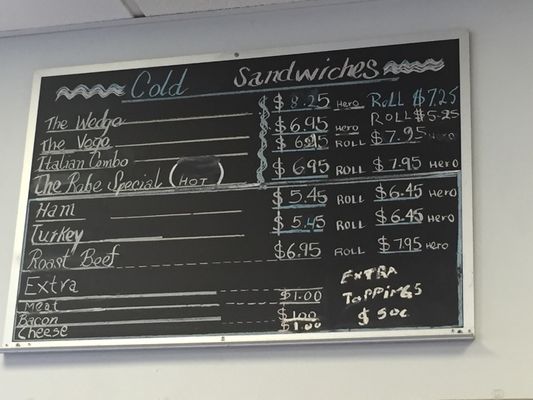 Cold Sandwiches
The Wedge $8.25 Hero Roll $7.25
The Vogo $6.95 Hero ROLL $5.25
Italian Combo $6.95 ROLL $7.95 Hero
The Rabe Special (HOT) $6.95 ROLL $7.95 HERO
Ham $5.45 ROLL $6.45 HERO
Turkey $5.45 ROLL $6.45 HERO
Roast Beef $6.95 ROLL $7.95 HERO
Extra EXTRA
Meat $1.00 TOPPINGS
Bacon $1.00 $ 50¢
Cheese $1.00